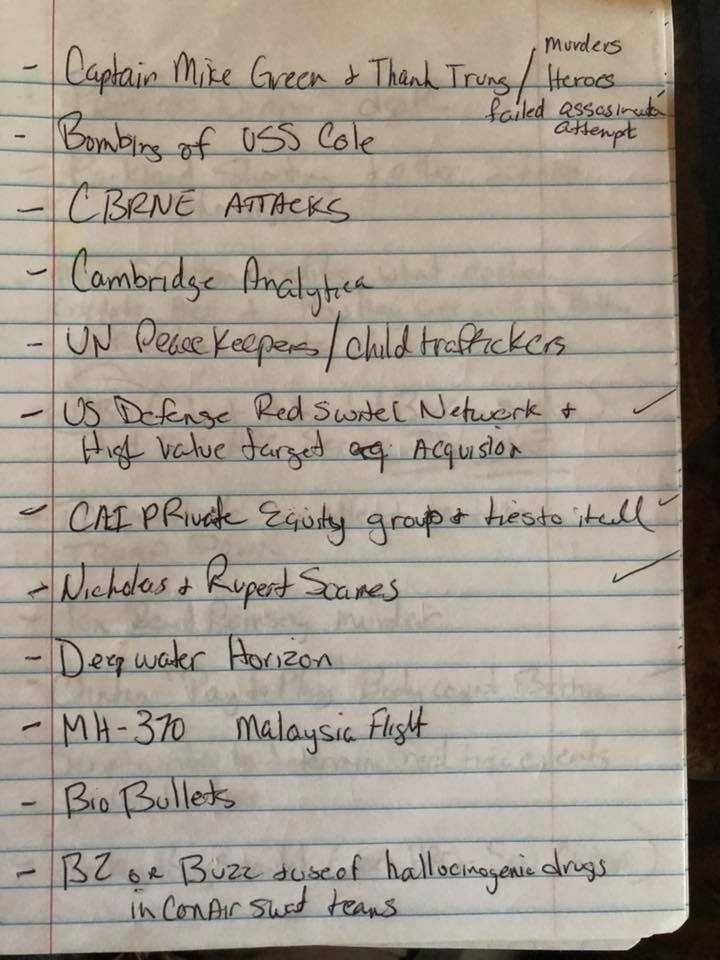 murders
- Captain Mike Green & Thanh Trung / Heroes
failed assasination
attempt
- Bombing of USS Cole
- CBRNE ATTACKS
- Cambridge Analytica
- UN PeaceKeepers / child traffickers
- US Defense Red Switch Network &
High Value target acquision
- CAI PRivate Equity group & ties to it all
- Nicholas & Rupert Soames
- Deep water Horizon
- MH-370 Malaysia Flight
- Bio Bullets
- BZ or Buzz & use of hallocinogenic drugs
in ConAir swat teams